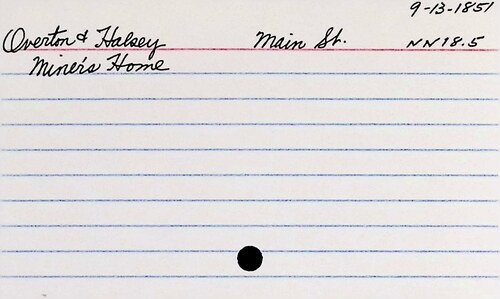 9-13-1851
Overton & Halsey Main St. NN18.5
Miner's Home